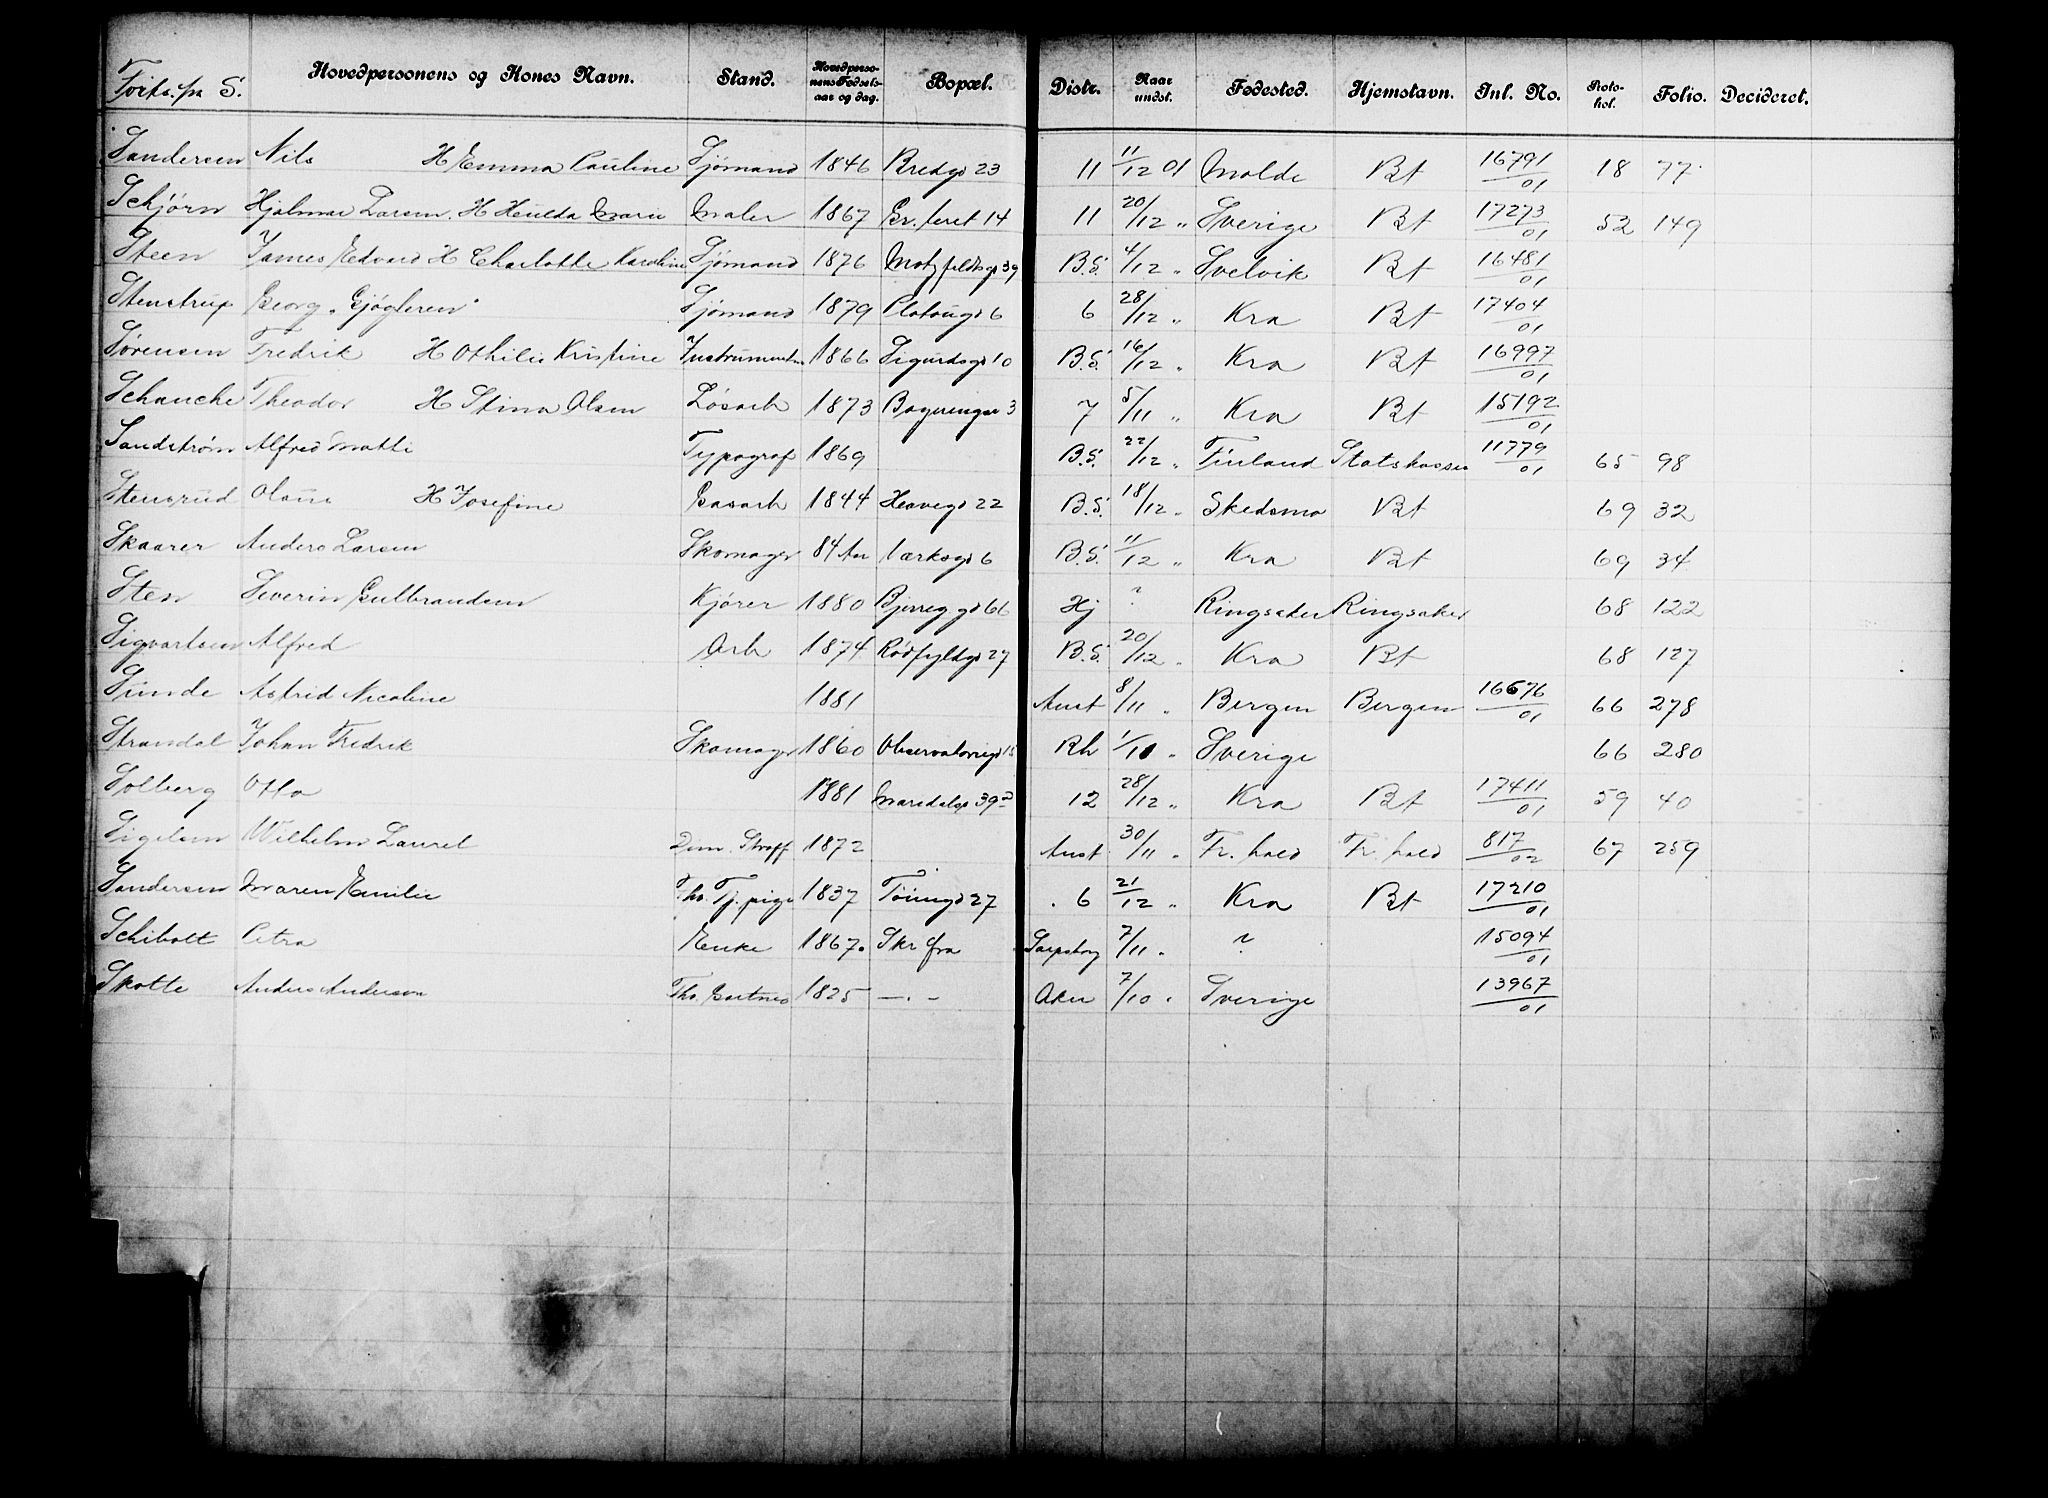 Forts. fra S. Hovedpersonens og Kones Navn. Stand. Hovedpersonens Fødselsaar og dag. Bopæl. Distr. Naar undst. Fødested. Hjemstavn. Inl. No. Protokol. Folio. Decideret.
Sandersen Nils H Emma Pauline Sjømand 1846 Bredgd 23 11 11/12 01 Molde Bt 16791/01 18 77
Schjørn Hjalmar Larsen H Hulda Marie Maler 1867 14 11 20/12 " Sverige Bt 17273/01 52 149
Steen James Edvard H Charlotte Karoline Sjømand 1876 Motzfeldtsgd 39 B.S. 4/12 " Svelvik Bt 16481/01
Stenstrup Georg "Gjøgleren" Sjømand 1879 Platougd 6 6 28/12 " Kra Bt 17404/01
Sørensen Fredrik H Othilie Kristine Instrumentm 1866 Sigurdsgd 10 B.S. 16/12 " Kra Bt 16997/01
Schanche Theodor H Stina Olsen Løsarb 1873 3 7 5/11 " Kra Bt 15192/01
Sandstrøm Alfred Matti Typograf 1869 B.S. 22/12 " Finland Statskassen 11779/01 65 98
Stensrud Olaus H Josefine Gasarb 1844 Heavegd 22 B.S. 18/12 " Skedsmo Bt 69 32
Skaarer Anders Larsen Skomager 84 Aar Værksgd 6 B.S. 11/12 " Kra Bt 69 34
Sten Severin Gulbrandsen Kjører 1880 66 Hj ? Ringsaker Ringsaker 68 122
Sigvartsen Alfred Arb 1874 Rødfyldgd 27 B.S. 20/12 " Kra Bt 68 127
Sunde Astrid Nicoline 1881 Aust 8/11 " Bergen Bergen 16676/01 66 278
Strandal Johan Fredrik Skomager 1860 Observatoriegd 15 Rh 1/10 " Sverige 66 280
Solberg Otto 1881 Maridalsgd 39 12 28/12 " Kra Bt 17411/01 59 40
Sigelsen Wilhelm Laurel Dim. Straff 1872 Aust 30/11 " Fr. hald Fr. hald 817/02 67 259
Sandersen Maren Emilie Fhv. Tj. pige 1837 Tøiengd 27 6 21/12 " Kra Bt 17210/01
Schibolt Petra Enke 1867 Skr fra Sarpsborg 7/11 " ? 15094/01
Skotte Anders Anderson Fhv. Gartner 1825 — . - Aker 7/10 " Sverige 13967/01